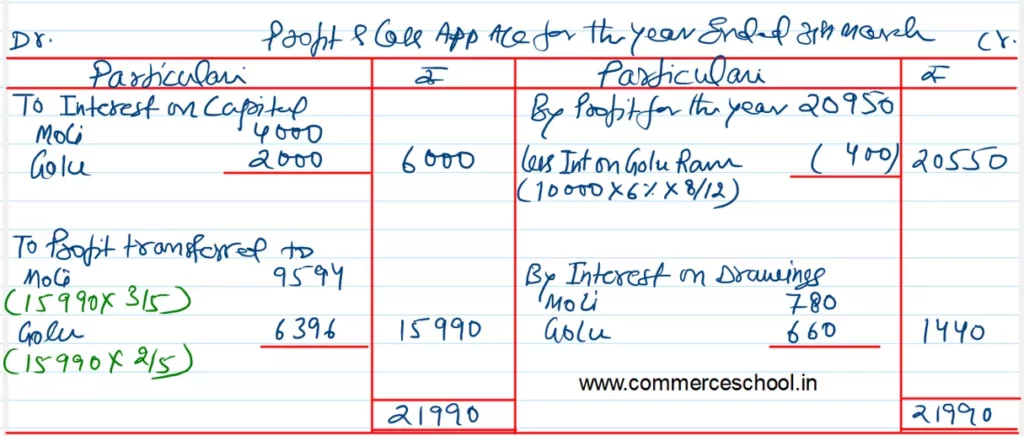 Dr. Profit & Loss App A/c for the year Ended 31st March Cr.
Particulars ₹ Particulars ₹
To Interest on Capital
Moli 4000
Golu 2000 6000
To Profit transferred to
Moli 9594
(15990 X 3/5)
Golu 6396 15990
(15990 X 2/5)
21990
By Profit for the year 20950
less Int on Golu Ram (400) 20550
(10000 X 6% X 8/12)
By Interest on Drawings
Moli 780
Golu 660 1440
www.commerceschool.in
21990